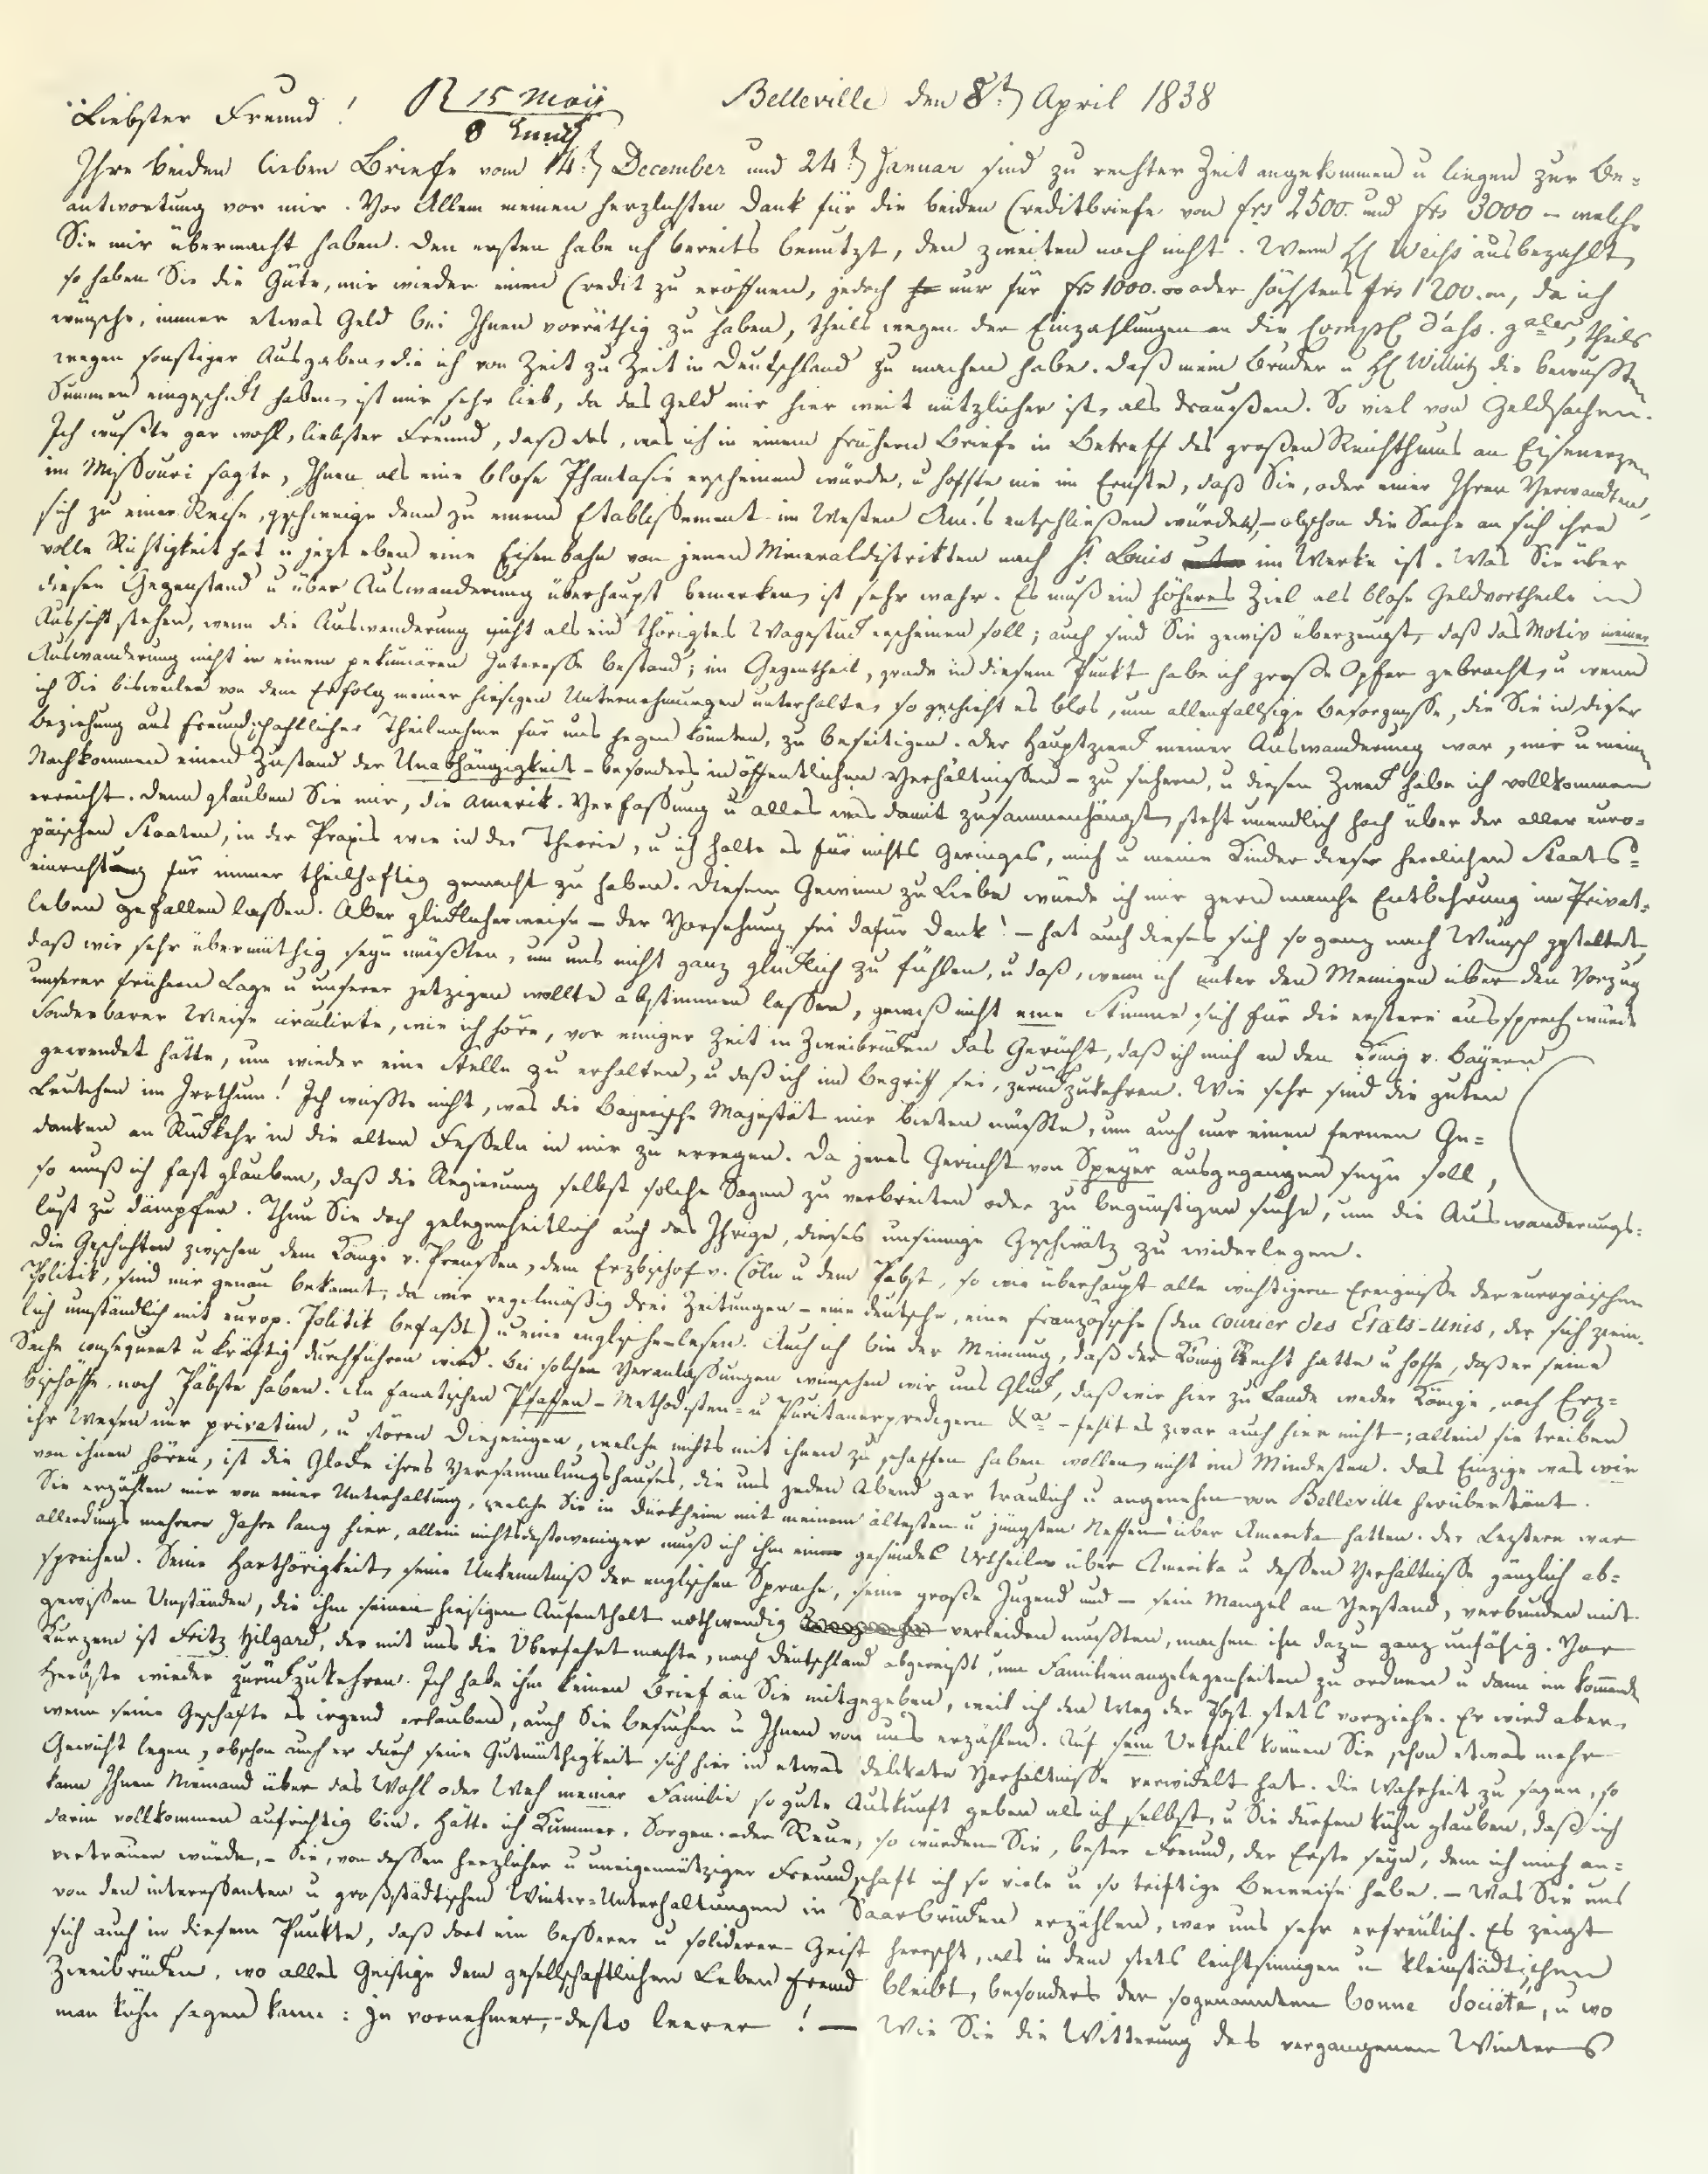 Belleville den 8t. April 1838
Liebster Freund! R 15 Maÿ
8
Ihre beiden lieben Briefe vom 14t. December und 24t. Januar sind zu rechter Zeit angekommen u liegen zur Be=
antwortung vor mir. Vor Allem meinen herzlichsten Dank für die beiden Creditbriefe von frs 2500. und frs 3000 – welche
Sie mir übermacht haben. Den ersten habe ich bereits benutzt, den zweiten noch nicht. Wenn H Weiss ausbezahlt,
so haben Sie die Güte, mir wieder einen Credit zu eröffnen, jedoch nur für frs 1000. oder höchstens frs 1200., da ich
wünsche, immer etwas Geld bei Ihnen vorräthig zu haben, theils wegen der Einzahlungen an die Comp d'ass. gales, theils
wegen sonstiger Ausgaben, die ich von Zeit zu Zeit in Deutschland zu machen habe. Daß mein Bruder u H Willnitz die bewußten
Summen eingeschickt haben, ist mir sehr lieb, da das Geld mir hier weit nützlicher ist, als draußen. So viel von Geldsachen.
Ich wußte gar wohl, liebster Freund, daß das, was ich in einem frühern Briefe in Betreff des großen Reichthums an Eisenerzen
im Missouri sagte, Ihnen als eine blose Phantasie erscheinen würde, u hoffte nie im Ernste, daß Sie, oder einer Ihrer Verwandten,
sich zu einer Reise, geschweige denn zu einem Etablissement im Westen Am.'s entschließen würden, – obschon die Sache an sich ihre
volle Richtigkeit hat u jezt eben eine Eisenbahn von jenen Mineraldistrikten nach St. Louis im Werke ist. Was Sie über
diesen Gegenstand u über Auswanderung überhaupt bemerken, ist sehr wahr. Es muß ein höheres Ziel als blose Geldvortheile in
Aussicht stehen, wenn die Auswanderung nicht als ein thörigtes Wagestück erscheinen soll; auch sind Sie gewiß überzeugt, daß das Motiv meiner
Auswanderung nicht in einem pekuniären Interesse bestand; im Gegentheil, grade in diesem Punkt habe ich große Opfer gebracht, u wenn
ich Sie bisweilen von dem Erfolg meiner hiesigen Unternehmungen unterhalte, so geschieht es blos, um allenfallsige Besorgnisse, die Sie in dieser
Beziehung aus freundschaftlicher Theilnahme für uns hegen könnten, zu beseitigen. Der Hauptzweck meiner Auswanderung war, mir u meinen
Nachkommen einen Zustand der Unabhängigkeit – besonders in öffentlichen Verhältnissen – zu sichern, u diesen Zweck habe ich vollkommen
erreicht. Denn glauben Sie mir, die Amerik. Verfassung u alles was damit zusammenhängt, steht unendlich hoch über der aller euro=
päischen Staaten, in der Praxis wie in der Theorie, u ich halte es für nichts Geringes, mich u meine Kinder dieser herrlichen Staats=
einrichtung für immer theilhaftig gemacht zu haben. Diesem Gewinn zu Liebe würde ich mir gern manche Entbehrung im Privat=
leben gefallen lassen. Aber glücklicherweise – der Vorsehung sei dafür Dank! – hat auch dieses sich so ganz nach Wunsch gestaltet,
daß wir sehr übermüthig seyn müßten, um uns nicht ganz glücklich zu fühlen, u daß, wenn ich unter den Meinigen über den Vorzug
unserer frühern Lage u unserer jetzigen wollte abstimmen lassen, gewiß nicht eine Stimme sich für die erstere aussprechen würde.
Sonderbarer Weise circulirte, wie ich höre, vor einiger Zeit in Zweibrücken das Gerücht, daß ich mich an den König v. Bayern
gewendet hätte, um wieder eine Stelle zu erhalten, u daß ich im Begriff sei, zurückzukehren. Wie sehr sind die guten
Leutchen im Irrthum! Ich wüßte nicht, was die Bayerische Majestät mir bieten müßte, um auch nur einen fernen Ge=
danken an Rückkehr in die alten Fesseln in mir zu erregen. Da jenes Gerücht von Speyer ausgegangen seyn soll,
so muß ich fast glauben, daß die Regierung selbst solche Sagen zu verbreiten oder zu begünstigen suche, um die Auswanderungs=
lust zu dämpfen. Thun Sie doch gelegenheitlich auch das Ihrige, dieses unsinnige Geschwätz zu widerlegen.
Die Geschichten zwischen dem Könige v. Preussen, dem Erzbischof v. Cöln u dem Pabst, so wie überhaupt alle wichtigern Ereignisse der europäischen
Politik, sind mir genau bekannt, da wir regelmäßig drei Zeitungen – eine deutsche, eine französische (den Courier des Etats-Unis, der sich ziem=
lich umständlich mit europ. Politik befaßt) u eine englische – lesen. Auch ich bin der Meinung, daß der König Recht hatte u hoffe, daß er seine
Sache consequent u kräftig durchführen wird. Bei solchen Veranlassungen wünschen wir uns Glück, daß wir hier zu Lande weder Könige, noch Erz=
bischöffe, noch Päbste haben. An fanatischen Pfaffen – Methodisten= u Puritanerpredigern &a – fehlt es zwar auch hier nicht; allein sie treiben
ihr Wesen nur privatim, u stören Diejenigen, welche nichts mit ihnen zu schaffen haben wollen, nicht im Mindesten. Das Einzige was wir
von ihnen hören, ist die Glocke ihres Versammlungshauses, die uns jeden Abend gar traulich u angenehm von Belleville herübertönt.
Sie erzählten mir von einer Unterhaltung, welche Sie in Dürkheim mit meinem ältesten u jüngsten Neffen über Amerika hatten. Der Leztere war
allerdings mehrere Jahre lang hier, allein nichtsdestoweniger muß ich ihm ein gesundes Urtheil über Amerika u dessen Verhältnisse gänzlich ab=
sprechen. Seine Harthörigkeit, seine Unkenntniß der englischen Sprache, seine große Jugend und – sein Mangel an Verstand, verbunden mit
gewissen Umständen, die ihm seinen hiesigen Aufenthalt nothwendig verleiden mußten, machen ihn dazu ganz unfähig. Vor
Kurzem ist Fritz Hilgard, der mit uns die Überfahrt machte, nach Deutschland abgereißt, um Familienangelegenheiten zu ordnen u dann im kommenden
Herbste wieder zurückzukehren. Ich habe ihm keinen Brief an Sie mitgegeben, weil ich den Weg der Post stets vorziehe. Er wird aber,
wenn seine Geschäfte es irgend erlauben, auch Sie besuchen u Ihnen von uns erzählen. Auf sein Urtheil können Sie schon etwas mehr
Gewicht legen, obschon auch er durch seine Gutmüthigkeit sich hier in etwas delikate Verhältnisse verwickelt hat. Die Wahrheit zu sagen, so
kann Ihnen Niemand über das Wohl oder Weh meiner Familie so gute Auskunft geben als ich selbst, u Sie dürfen kühn glauben, daß ich
darin vollkommen aufrichtig bin. Hätte ich Kummer, Sorgen oder Reue, so würden Sie, bester Freund, der Erste seyn, dem ich mich an=
vertrauen würde, – Sie, von dessen herzlicher u uneigennütziger Freundschaft ich so viele u so triftige Beweise habe. – Was Sie uns
von den interessanten u großstädtischen Winter=Unterhaltungen in Saarbrücken erzählen, war uns sehr erfreulich. Es zeigt
sich auch in diesem Punkte, daß dort ein besserer u soliderer Geist herrscht, als in dem stets leichtsinnigen u kleinstädtischen
Zweibrücken, wo alles Geistige dem gesellschaftlichen Leben fremd bleibt, besonders der sogenannten bonne Société, u wo
man kühn sagen kann: je vornehmer, desto leerer! – Wie Sie die Witterung des vergangenen Winters